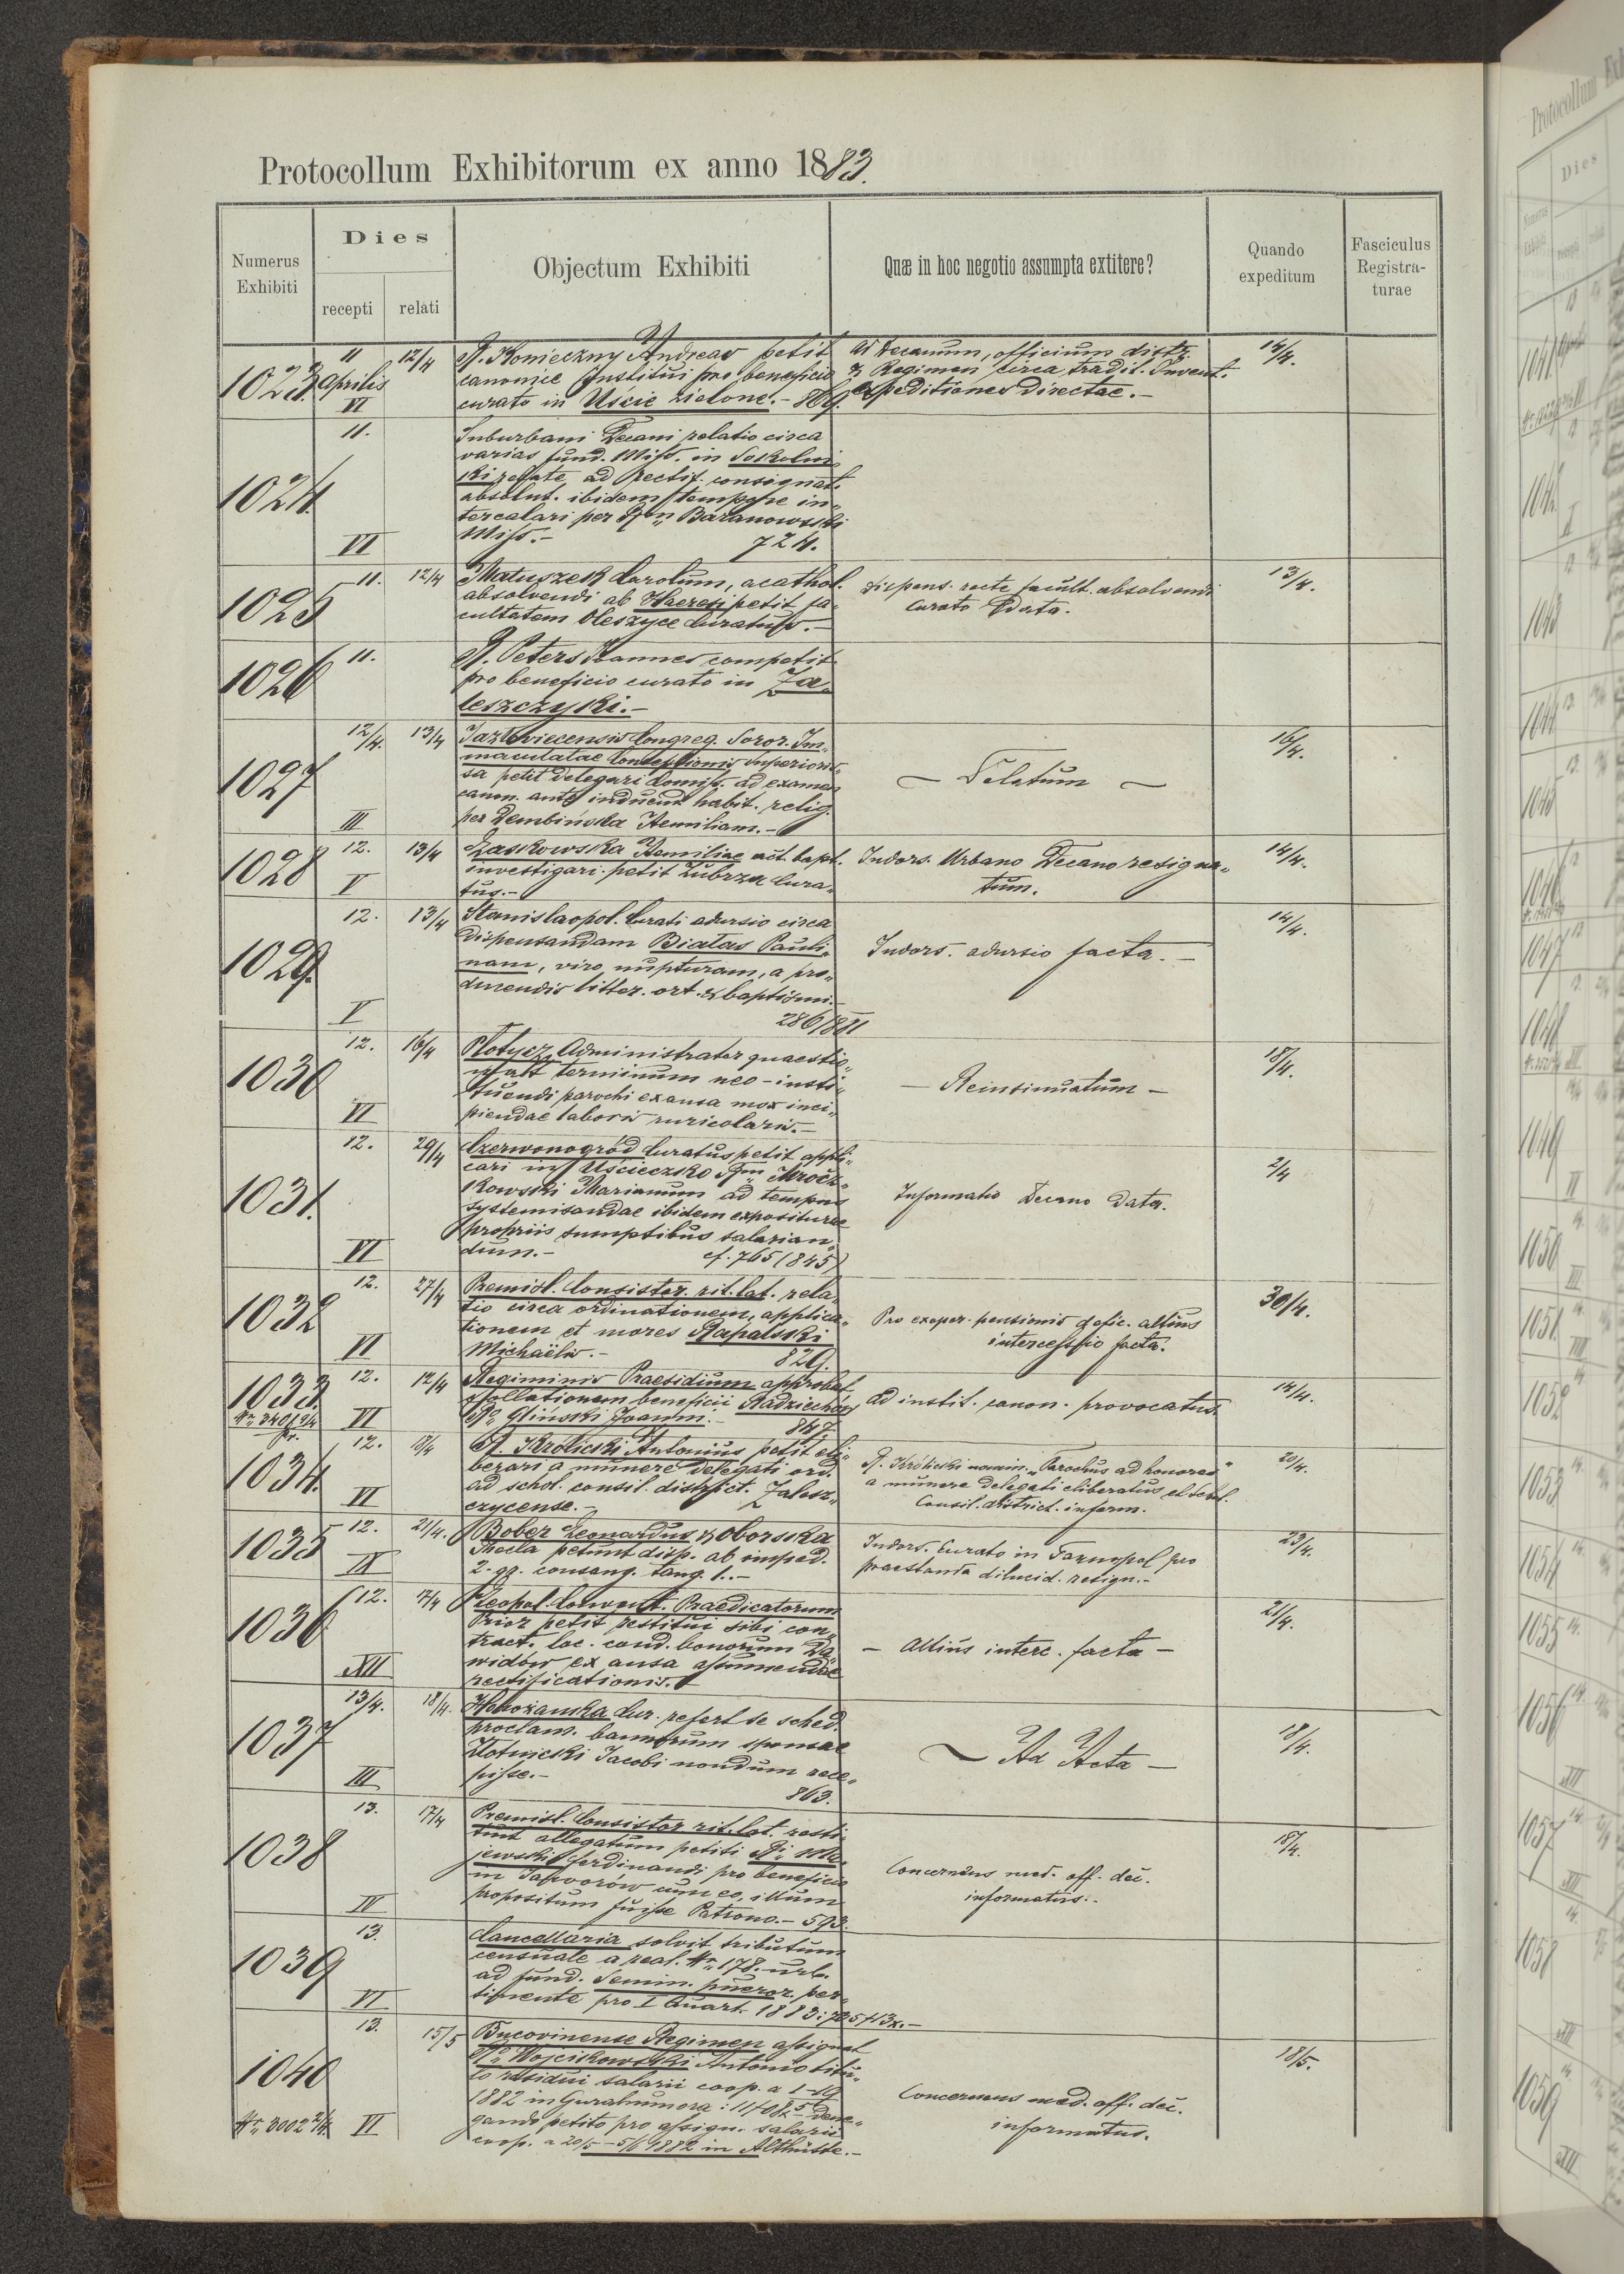 Protocollum Exhibitorum ex anno 1883.
Numerus Exhibiti
Dies
recepti
relati
Objectum Exhibiti
Quæ in hoc negotio assumpta extitere?
Quando expeditum
Fasciculus Registra-
turae
1023. 11 Aprilis VI 12/4
R. Konieczny Andreas petit
canonice Institui pro beneficio
curato in Uscie zielone.- 869.
Ad Decanum, officium distr.
& Regimen circa tradit. Invent.
expeditiones directae.-
14/4.
1024. 11. VI
Suburbani Decani relatio circa
varias fund. Miss. in Sokolni„
ki ad rectif. consignat.
absolut. ibidem tempore in„
tercalari per R„ Baranowski
Miss.- 724.
1025 11. 12/4
Matuszek Carolum, acathol.
absolvendi ab Haeresi petit fa„
cultatem Oleszyce Curatus.-
Dispens. recte facult. absolvendi
Curato data.
13/4.
1026 11.
R. Peters Joannes competit
pro beneficio curato in Za„
leszczyki.-
1027 12/4. III 13/4
Jazłoviecensis Congreg. Soror. Im„
maculatae Conceptionis Superioris„
sa petit delegari Comiss. ad examen
canon. ante induend. habit. relig.
per Dembińska Aemiliam.-
- Delatum -
16/4.
1028 12. V 13/4
Laskowska Aemiliae act. bapt.
investigari petit Zubrza Cura„
tus.-
Indors. Urbano Decano resigna„
tum.
14/4.
1029. 12. V 13/4
Stanislaopol. Curati adursio circa
dispensandam Białas Pauli„
nam, viro nupturam, a pro„
ducendis litter. ort. & baptismi.-
286/881
Indors. adursio facta.-
14/4.
1030 12. VI 16/4
Płotycz Administrator quaestio„
terminum neo-insti„
tuendi parochi ex ausa mox inci„
piendae laboris ruricolaris.-
- Reinsinuatum -
18/4.
1031. 12. VI 29/4
Czerwonogród Curatus petit appli„
cari in Uścieczko R„ Mrocz„
kowski Marianum ad tempus
systemisandae ibidem expositurae
propriis sumptibus salarian„
dum.- cf. 765 (845)
Informatio Decano data.
2/4
1032 12. VI 27/4
Premisl. Consistor. rit. lat. rela„
tio circa ordinationem, applica„
tionem et mores Rapalski
Michaëlis.- 829.
Pro exoper. pensionis defic. altius
intercessio facta.
30/4.
1033. 12. VI 12/4
Regiminis Praesidium approbat
collationem beneficii Radziechów
R„ Gliński Joanni.- 847.
Ad instit. canon. provocatus.
14/4.
1034. 12. VI 18/4
R. Królicki Antonius petit eli„
berari a munere delegati ord.
ad schol. consil. district. Zalesz„
czycense.-
R. Królicki nomin. „Parochus ad honores“
a munere delegati eliberatus et schol.
Consil. district. inform.
20/4.
1035 12. IX 21/4.
Bober Leonardus & Oborska
Thecla petunt disp. ab imped.
2. gr. consang. tang. 1..-
Indors. Curato in Tarnopol pro
praestanda dilucid. resign.-
23/4.
1036 12. XII 17/4
Leopol. Convent. Praedicatorum
Prior petit restitui sibi con„
tract. loc. cond. bonorum Da„
widów ex ausa assumendae
rectificationis.
- Altius interc. facta -
21/4.
1037 13/4. III 18/4.
Hodorzanska Cur. refert se sched.
proclam. bannorum sponsae
Złotnicki Jacobi nondum rece„
pisse.- 863.
- Ad Acta -
18/4.
1038 13. IV 17/4
Premisl. Consistor rit. lat. resti„
tuit allegatum petiti
jewski Ferdinandi pro beneficio
in cum eo, illum
propositum fuisse Patrono.- 593.
Concernens med. off. dec.
informatus.-
18/4.
1039 13. VI
Cancellaria solvit tributum
censuale a real. Nr„ 178. urb.
ad fund. Semin. pueror. per„
tinente pro I Quart. 1883:
1040 13. VI 15/5
Nr„ 3002
Bucovinense Regimen assignat
R„ Wojcikowski Antonio titu„
lo residui salarii coop. a
1882 in Gurahumora: dene„
gando petito pro assign. salarii
coop. a 20/5-5/6 1882 in Althütte.-
Concernens med. off. dec.
informatus.
18/5.